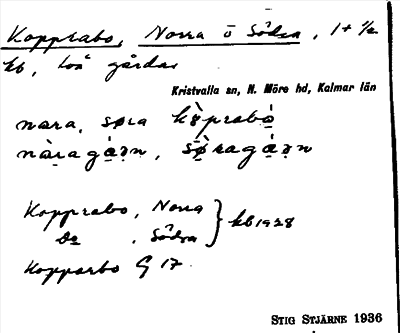 Kopprabo, Norra o Södra, 1 + 1/2
kb, två gårdar
Kristvalla sn, N. Möre hd, Kalmar län
nara, søra
nàragạ́ṇ, sø̀ragạ́ṇ
Kopprabo, Norra } kb 1928
Do , Södra
Kopparbo G 17
STIG STJÄRNE 1936